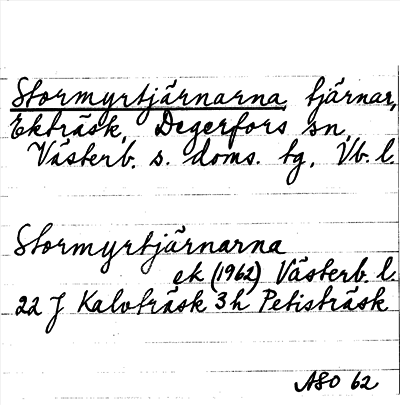 Stormyrtjärnarna, tjärnar,
Ekträsk, Degerfors sn,
Västerb. s. doms. tg, Vb. l.
Stormyrtjärnarna
ek (1962) Västerb. l
22 J Kalvträsk 3h Petisträsk
ASO 62